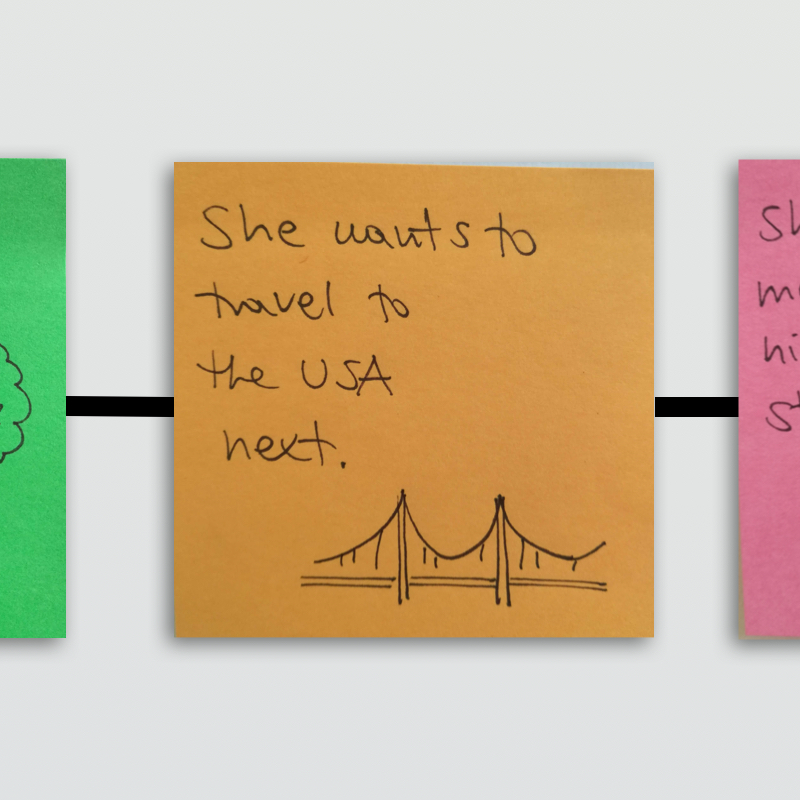 She wants to
travel to
the USA
next.